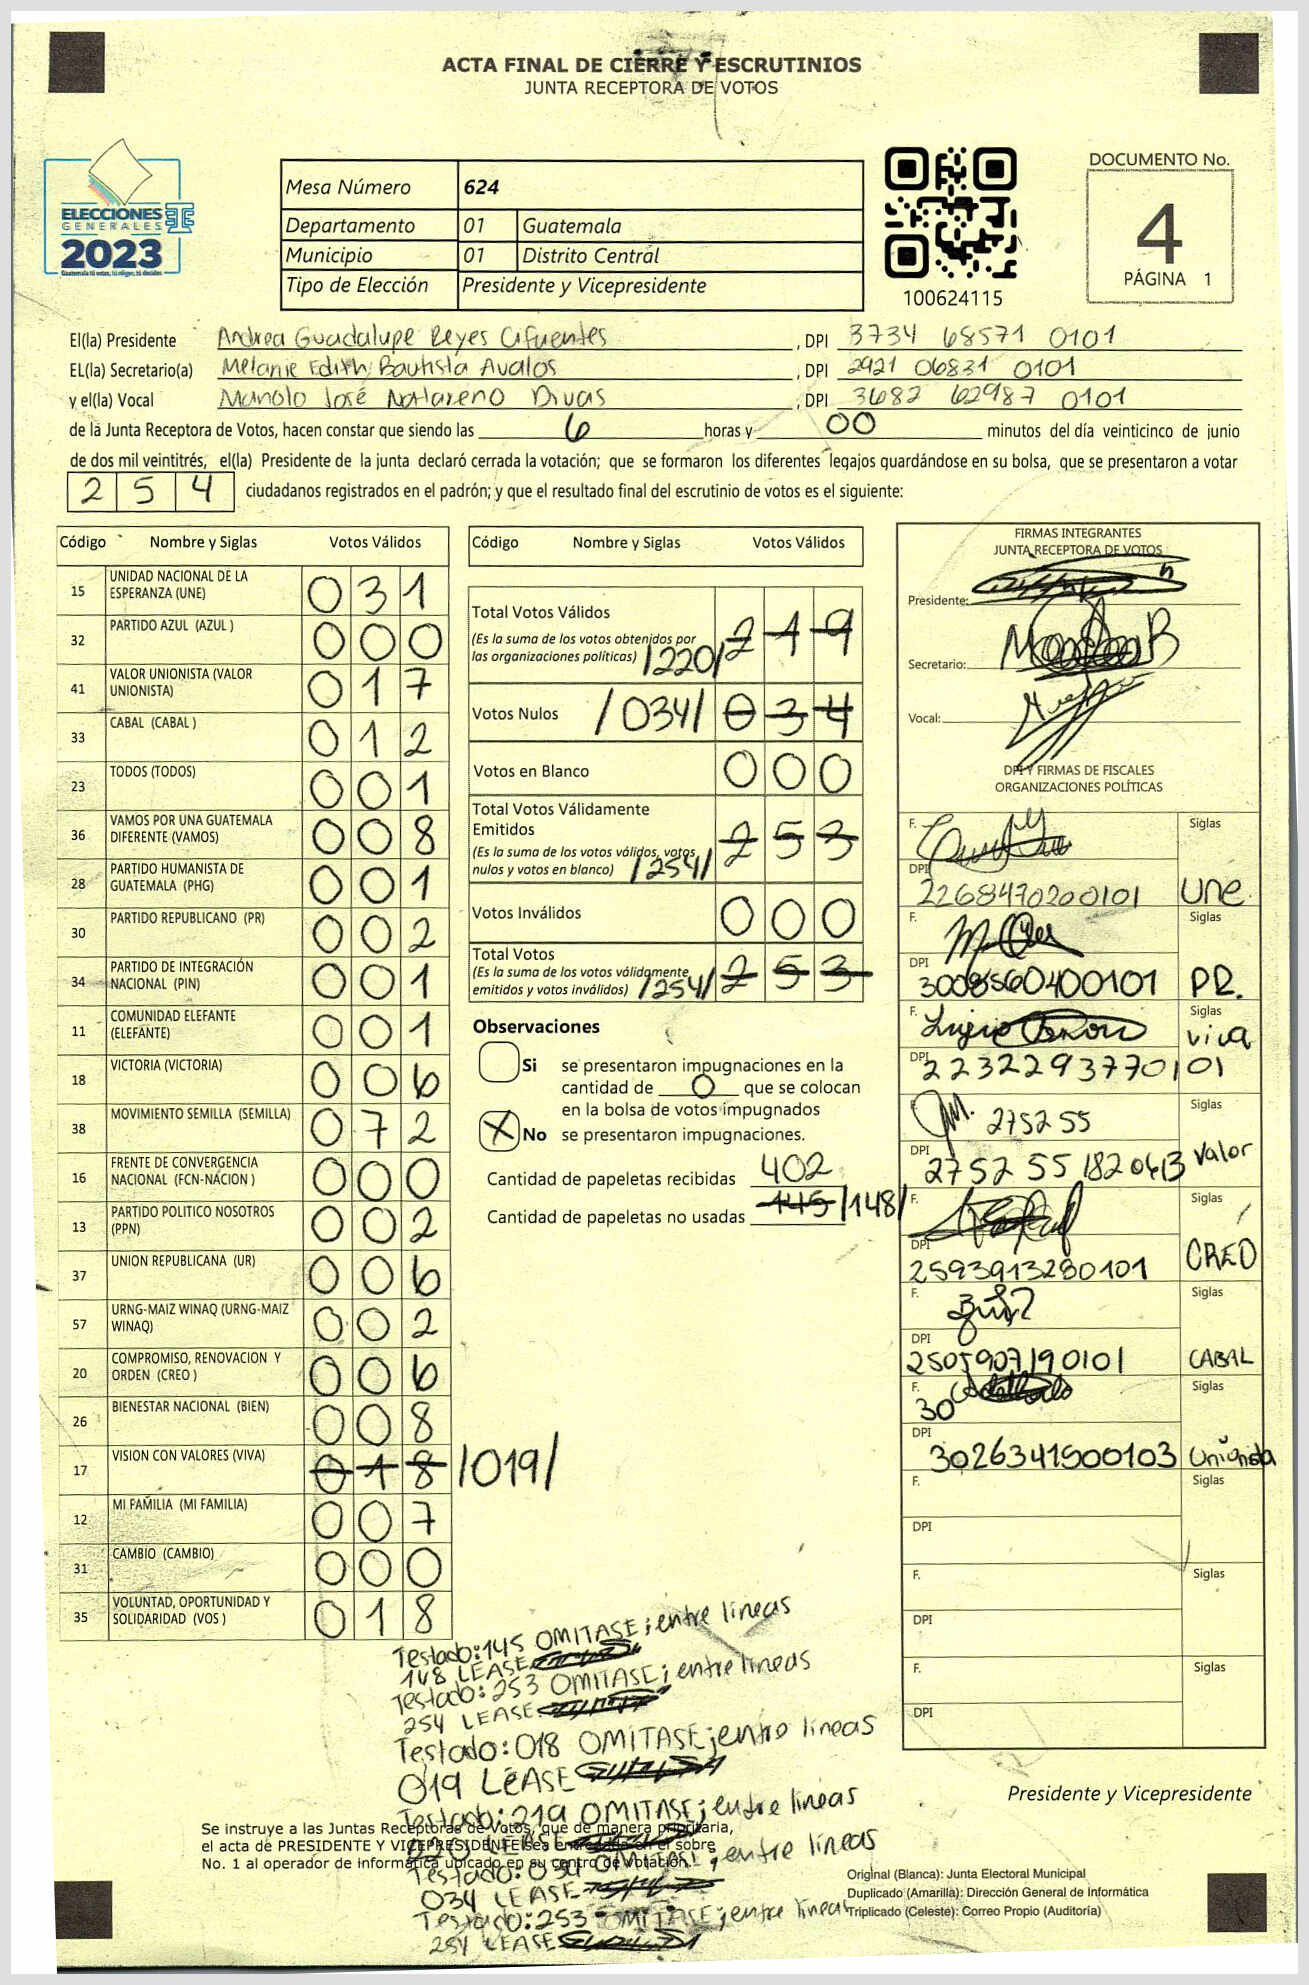 ACTA FINAL DE CIERRE Y ESCRUTINIOS
JUNTA RECEPTORA DE VOTOS
ELECCIONES
GENERALES
2023
Guatemala tú votas, tú eliges, tú decides
Mesa Número 624
Departamento 01 Guatemala
Municipio 01 Distrito Central
Tipo de Elección Presidente y Vicepresidente
100624115
DOCUMENTO No.
4
PÁGINA 1
El(la) Presidente Andrea Guadalupe Reyes Cifuentes, DPI 3734 68571 0101
EL(la) Secretario(a) Melanie Edith Bautista Avalos, DPI 2921 06831 0101
y el(la) Vocal Manolo José Notareno Divas, DPI 3682 62987 0101
de la Junta Receptora de Votos, hacen constar que siendo las 6 horas y 00 minutos del día veinticinco de junio
de dos mil veintitrés, el(la) Presidente de la junta declaró cerrada la votación; que se formaron los diferentes legajos guardándose en su bolsa, que se presentaron a votar
2 5 4 ciudadanos registrados en el padrón; y que el resultado final del escrutinio de votos es el siguiente:
Código Nombre y Siglas Votos Válidos
15 UNIDAD NACIONAL DE LA ESPERANZA (UNE) 0 3 1
32 PARTIDO AZUL (AZUL ) 0 0 0
41 VALOR UNIONISTA (VALOR UNIONISTA) 0 1 7
33 CABAL (CABAL ) 0 1 2
23 TODOS (TODOS) 0 0 1
36 VAMOS POR UNA GUATEMALA DIFERENTE (VAMOS) 0 0 8
28 PARTIDO HUMANISTA DE GUATEMALA (PHG) 0 0 1
30 PARTIDO REPUBLICANO (PR) 0 0 2
34 PARTIDO DE INTEGRACIÓN NACIONAL (PIN) 0 0 1
11 COMUNIDAD ELEFANTE (ELEFANTE) 0 0 1
18 VICTORIA (VICTORIA) 0 0 6
38 MOVIMIENTO SEMILLA (SEMILLA) 0 7 2
16 FRENTE DE CONVERGENCIA NACIONAL (FCN-NACION ) 0 0 0
13 PARTIDO POLITICO NOSOTROS (PPN) 0 0 2
37 UNION REPUBLICANA (UR) 0 0 6
57 URNG-MAIZ WINAQ (URNG-MAIZ WINAQ) 0 0 2
20 COMPROMISO, RENOVACION Y ORDEN (CREO ) 0 0 6
26 BIENESTAR NACIONAL (BIEN) 0 0 8
17 VISION CON VALORES (VIVA) 0 1 8 /019/
12 MI FAMILIA (MI FAMILIA) 0 0 7
31 CAMBIO (CAMBIO) 0 0 0
35 VOLUNTAD, OPORTUNIDAD Y SOLIDARIDAD (VOS ) 0 1 8
Código Nombre y Siglas Votos Válidos
Total Votos Válidos
(Es la suma de los votos obtenidos por
las organizaciones políticas) /220/ 2 1 9
Votos Nulos /034/ 0 3 4
Votos en Blanco 0 0 0
Total Votos Válidamente
Emitidos
(Es la suma de los votos válidos, votos
nulos y votos en blanco) /254/ 2 5 3
Votos Inválidos 0 0 0
Total Votos
(Es la suma de los votos válidamente
emitidos y votos inválidos) /254/ 2 5 3
Observaciones
Si se presentaron impugnaciones en la
cantidad de 0 que se colocan
en la bolsa de votos impugnados
X No se presentaron impugnaciones.
Cantidad de papeletas recibidas 402
Cantidad de papeletas no usadas 145 /148/
FIRMAS INTEGRANTES
JUNTA RECEPTORA DE VOTOS
Presidente:
Secretario:
Vocal:
DPI Y FIRMAS DE FISCALES
ORGANIZACIONES POLÍTICAS
F. Siglas
DPI 2268470200101 Une
F. Siglas
DPI 3008560400101 PR.
F. Siglas
DPI 2232293770101 Viva
F. 2752 55 Siglas
DPI 2752 55 182 0613 Valor
F. Siglas
DPI 2593913280101 CREO
F. Siglas
DPI 2505907190101 CABAL
F. 30 Siglas
DPI 3026341500103 Unionista
F. Siglas
DPI
F. Siglas
DPI
F. Siglas
DPI
Testado: 145 OMITASE; entre lineas
148 LEASE
Testado: 253 OMITASE; entre lineas
254 LEASE
Testado: 018 OMITASE; entre lineas
019 LEASE
Testado: 219 OMITASE; entre lineas
220 LEASE
Testado: 034 OMITASE; entre lineas
034 LEASE
Testado: 253 OMITASE; entre lineas
254 LEASE
Presidente y Vicepresidente
Se instruye a las Juntas Receptoras de Votos, que de manera prioritaria,
el acta de PRESIDENTE Y VICEPRESIDENTE sea entregada en el sobre
No. 1 al operador de informática ubicado en su centro de votación.
Original (Blanca): Junta Electoral Municipal
Duplicado (Amarilla): Dirección General de Informática
Triplicado (Celeste): Correo Propio (Auditoría)